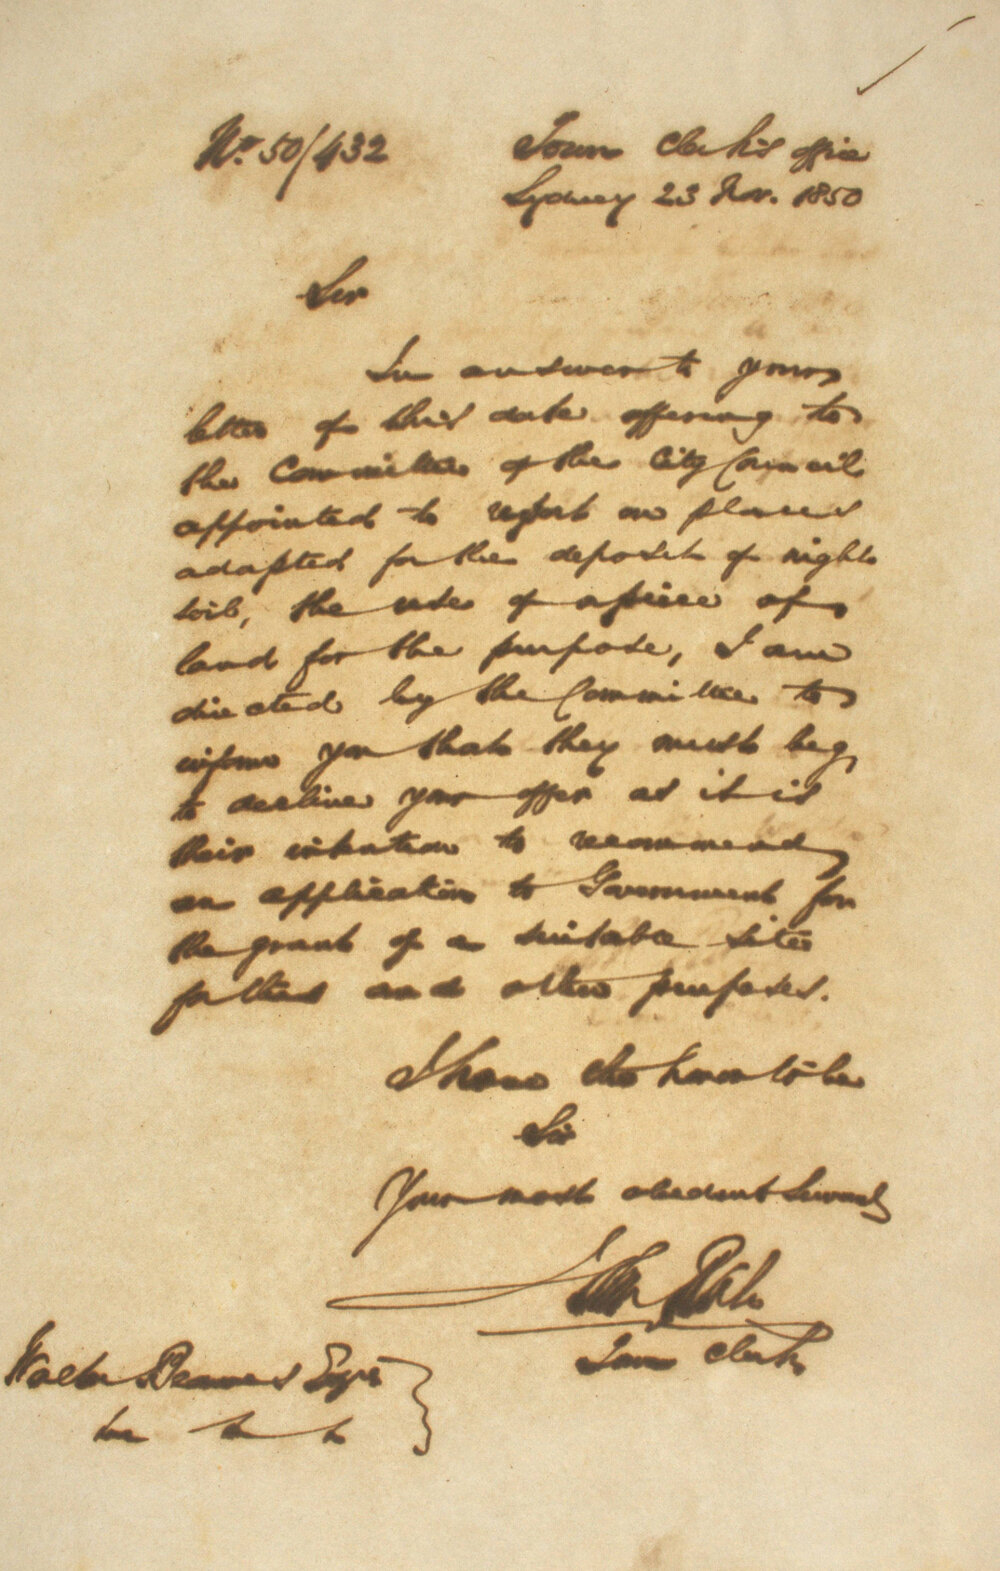 No. 50/432
Town Clerk's office
Sydney 23 Nov. 1850
Sir
In answer to your
letter of this date offering to
the Committee of the City Council
appointed to report on places
adapted for the deposit of night
soil, the use of a piece of
land for the purpose, I am
directed by the Committee to
inform you that they must beg
to decline your offer as it is
their intention to recommend
an application to Government for
the grant of a suitable site
for this and other purposes.
I have the honor to be
Sir
Your most obedient Servant
John
Town Clerk
Walter Beames Esqre